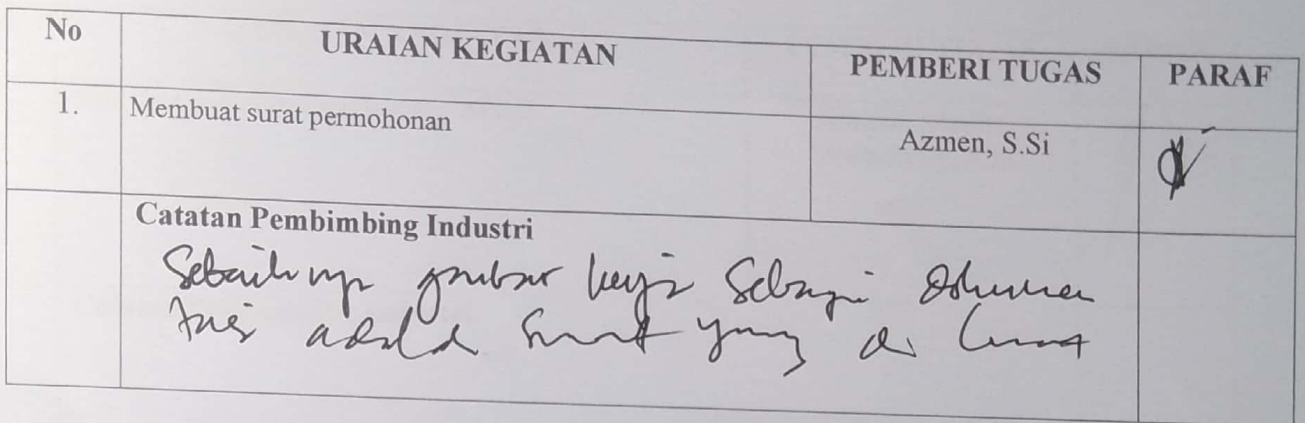 No URAIAN KEGIATAN PEMBERI TUGAS PARAF
1. Membuat surat permohonan Azmen, S.Si
Catatan Pembimbing Industri
Sebaiknya gambar kerja sebagai dokumen
adalah surat yang di